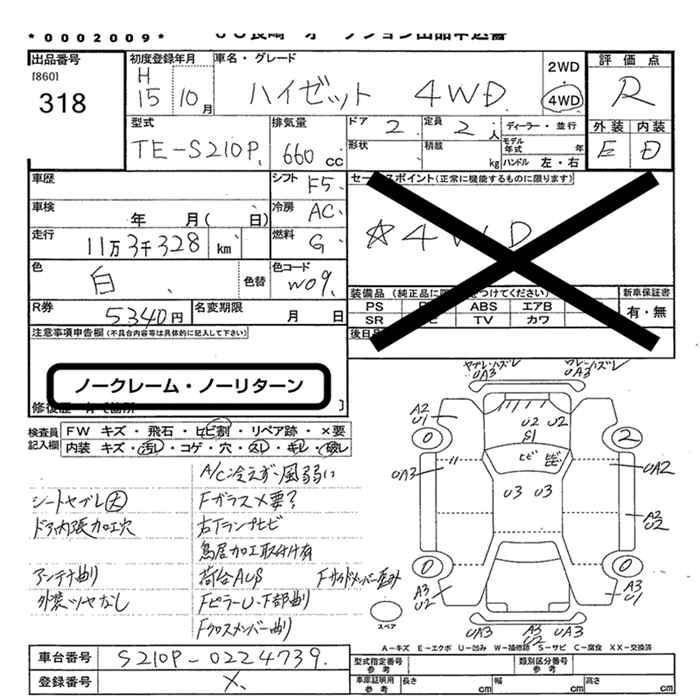 *0002009*
出品番号
[860]
318
初度登録年月
H
15年 10月
車名・グレード
ハイゼット 4WD
2WD
・
4WD
評価点
R
外装 内装
E D
型式
TE-S210P
排気量
660 cc
ドア 2
定員 2人
形状
積載 kg
ディーラー・並行
モデル年式 年
ハンドル 左・右
車歴
シフト F5
車検
年 月( 日)
冷房 AC
走行
11万3千328 km
燃料 G
色
白
色替
色コード W09
R券 5340円
名変期限 月 日
セールスポイント(正常に機能するものに限ります)
☆4WD
装備品
PS ABS エアB
SR TV カワ
新車保証書
有・無
注意事項申告欄(不具合内容等は具体的に記入して下さい)
ノークレーム・ノーリターン
検査員記入欄
FW キズ・飛石・ヒビ割・リペア跡・×要
内装 キズ・汚レ・コゲ・穴・スレ・キレ・破レ
A/C冷えず・風弱い
シートヤブレ大
Fガラス×要?
ドア内張加工穴
右Tランプヒビ
鳥居加工取付有
アンテナ曲り
荷台AUS
外装ツヤなし
Fピラー U・下部曲り
Fクロスメンバー曲り
UA3
UA3
A2
U1
U2 U2
S1
0
2
ヒビ ヒビ
UA3
UA2
U3 U3
A3
U2
0
0
A3
U2
A3
U1
スペア
UA3
UA3
U2
A-キズ E-エクボ U-凹み W-補修跡 S-サビ C-腐食 XX-交換済
車台番号 S210P-0224739
登録番号 X
型式指定番号
参考
類別区分番号
参考
車庫証明用
参考
長さ cm
幅 cm
高さ cm